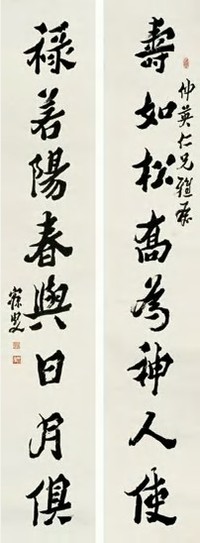 壽如松喬為神人使
仲英仁兄雅屬
祿若陽春與日月俱